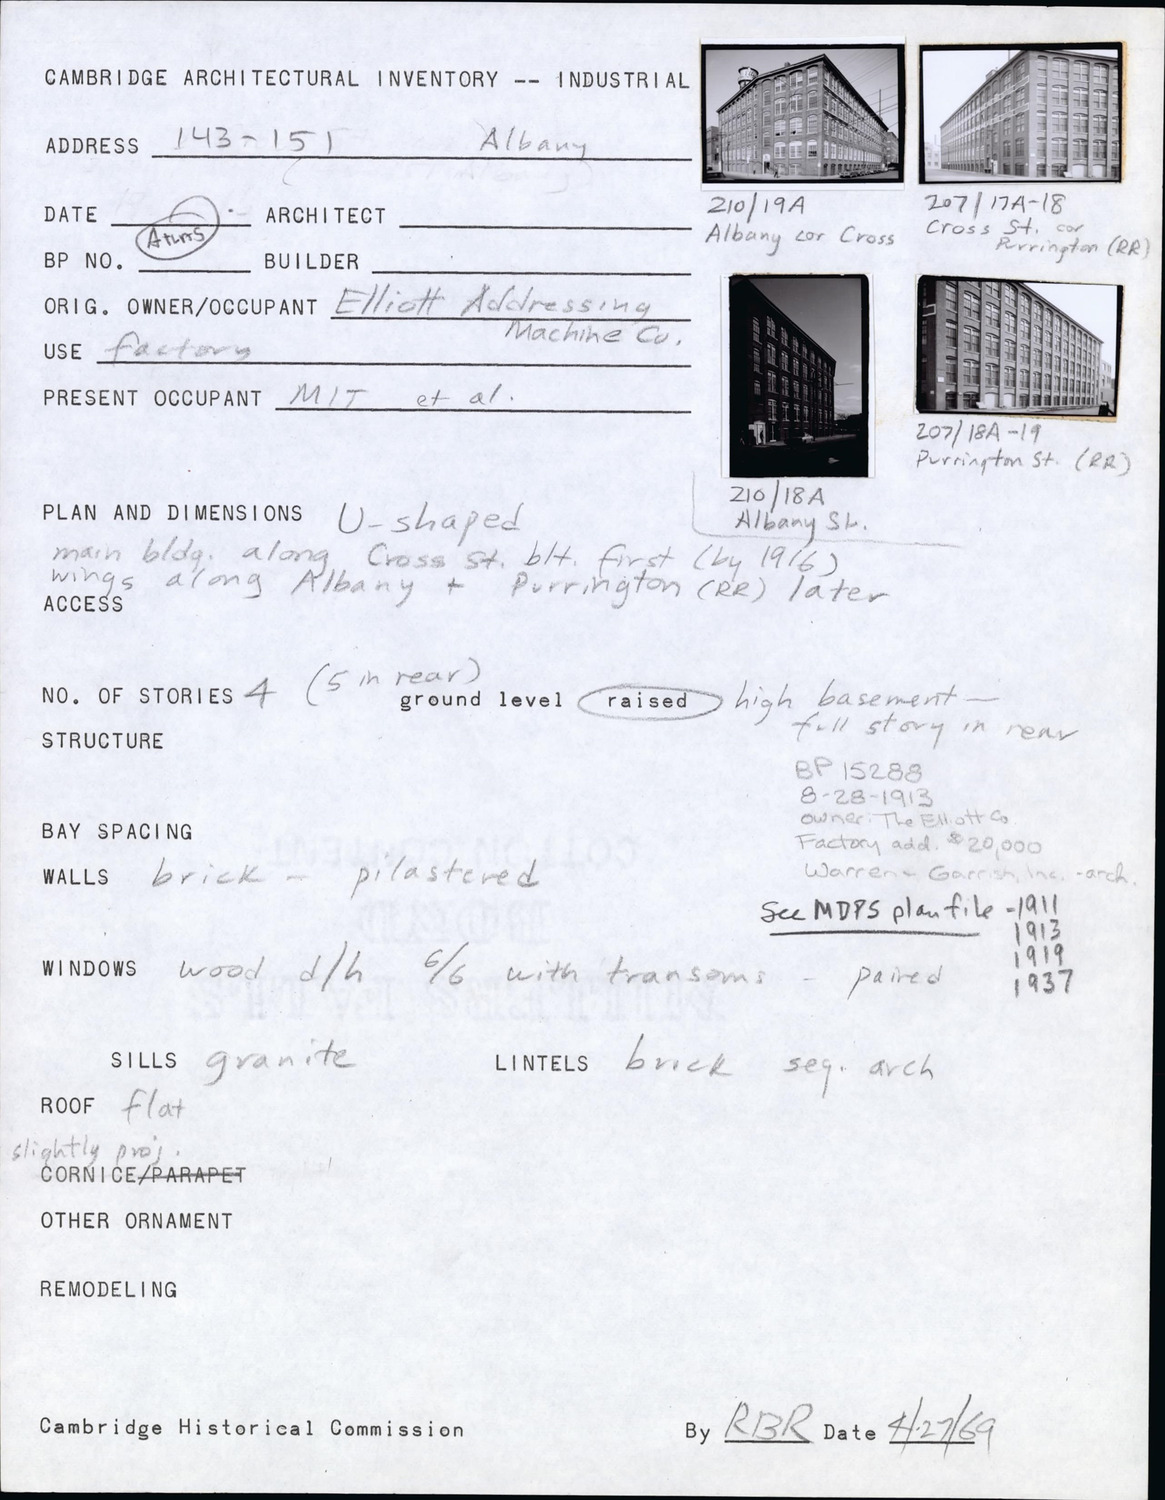 CAMBRIDGE ARCHITECTURAL INVENTORY -- INDUSTRIAL
ADDRESS 143-151 Albany
DATE ARCHITECT
BP NO. BUILDER
ORIG. OWNER/OCCUPANT Elliott Addressing
Machine Co.
USE factory
PRESENT OCCUPANT MIT et al.
210/19A
Albany cor Cross
207/17A-18
Cross St. cor
Purrington (RR)
210/18A
Albany St.
207/18A-19
Purrington St. (RR)
PLAN AND DIMENSIONS U-shaped
main bldg. along Cross St. blt. first (by 1916)
wings along Albany + Purrington (RR) later
ACCESS
NO. OF STORIES 4 (5 in rear) ground level raised high basement—
full story in rear
STRUCTURE
BP 15288
8-28-1913
owner: The Elliott Co
Factory add. $20,000
Warren + Gerrish, Inc. -arch.
BAY SPACING
WALLS brick - pilastered
See MDPS plan file -1911
1913
1919
1937
WINDOWS wood d/h 6/6 with transoms - paired
SILLS granite LINTELS brick seg. arch
ROOF flat
slightly proj.
CORNICE/PARAPET
OTHER ORNAMENT
REMODELING
Cambridge Historical Commission By RBR Date 4/27/69